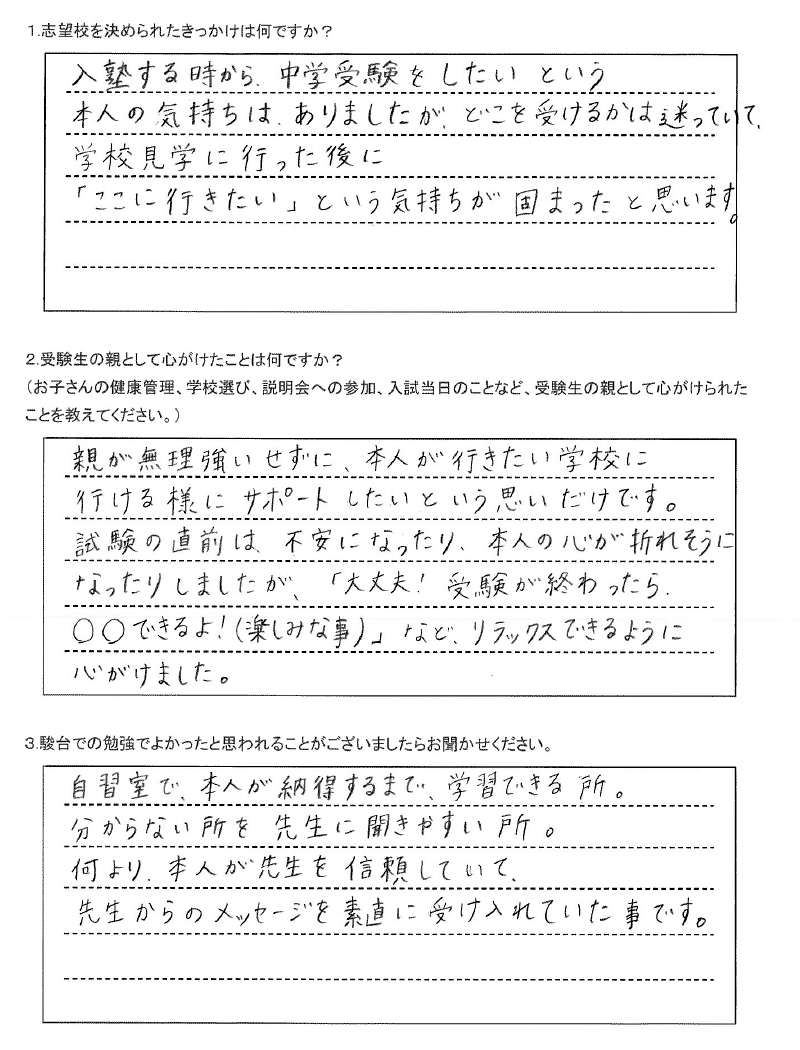 1.志望校を決められたきっかけは何ですか？
入塾する時から、中学受験をしたいという
本人の気持ちは、ありましたが、どこを受けるかは迷っていて、
学校見学に行った後に
「ここに行きたい」という気持ちが固まったと思います。
2.受験生の親として心がけたことは何ですか？
（お子さんの健康管理、学校選び、説明会への参加、入試当日のことなど、受験生の親として心がけられた
ことを教えてください。）
親が無理強いせずに、本人が行きたい学校に
行ける様にサポートしたいという思いだけです。
試験の直前は、不安になったり、本人の心が折れそうに
なったりしましたが、「大丈夫！受験が終わったら、
○○できるよ！(楽しみな事)」など、リラックスできるように
心がけました。
3.駿台での勉強でよかったと思われることがございましたらお聞かせください。
自習室で、本人が納得するまで、学習できる所。
分からない所を先生に聞きやすい所。
何より、本人が先生を信頼していて、
先生からのメッセージを素直に受け入れていた事です。